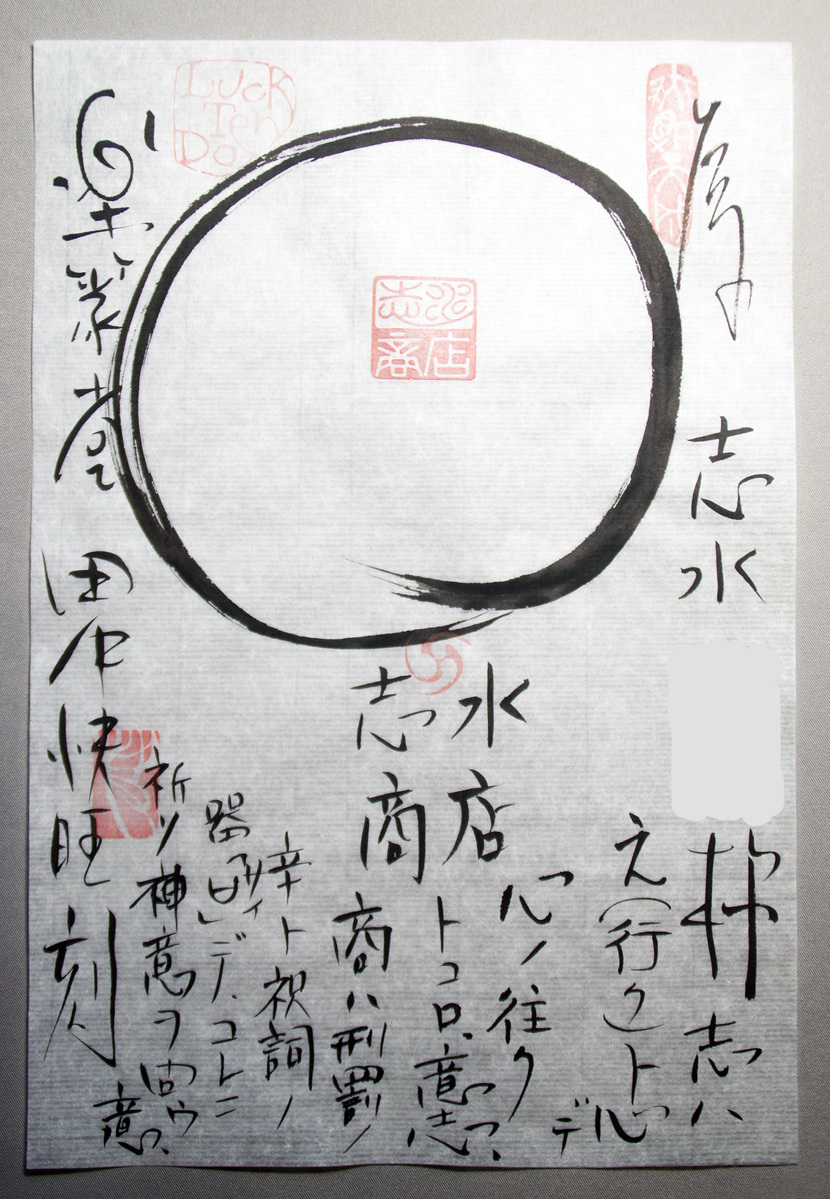 志水 志ハ
之(行ク)ト心デ
心ノ往ク
トコロ、意志、
志水
商店
商ハ刑罰ノ
辛ト祝詞ノ
器「サイ」デ、コレニ
祈リ神意ヲ問ウ
意、
楽篆堂 田中快旺 刻
志水
商店
Luck
Ten
Do